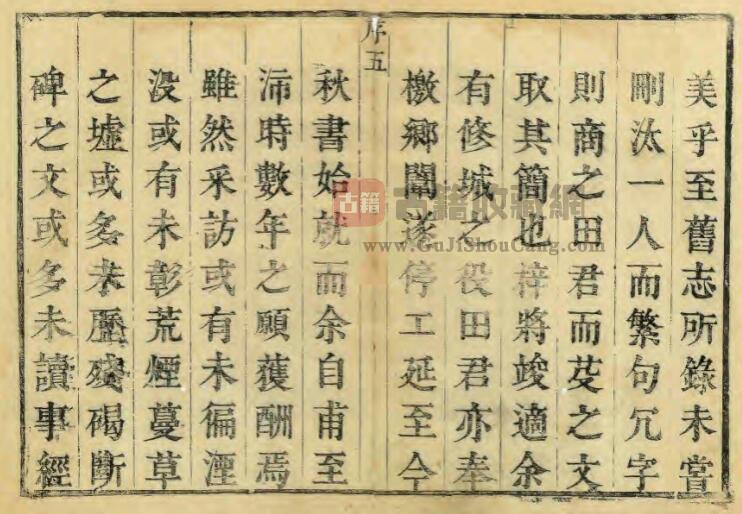 美乎至舊志所錄未嘗
刪汰一人而繁句冗字
則商之田君而芟之文
取其簡也梓將竣適余
有修城之役田君亦奉
檄鄉闈遂停工延至今
序五
秋書始就而余自甫至
沛時數年之願獲酬焉
雖然采訪或有未徧湮
沒或有未彰荒煙蔓草
之墟或多未歷殘碣斷
碑之文或多未讀事經
古籍
古籍收藏網
www.GuJiShouCang.com